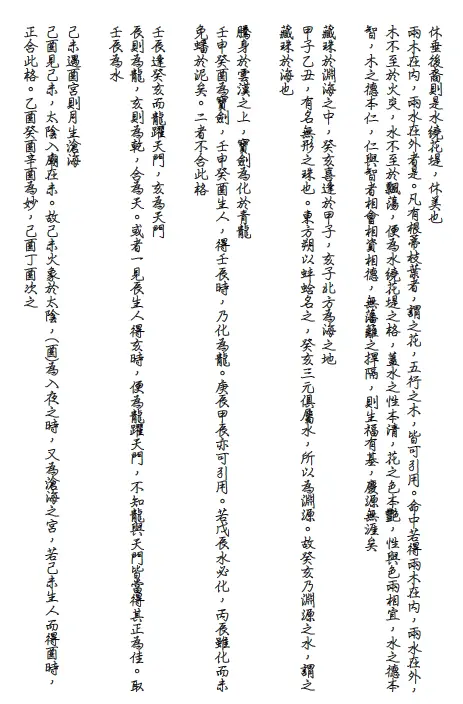 休垂後裔則是水繞花堤，休美也
兩木在內，兩水在外者是。凡有根蒂枝葉者，謂之花，五行之木，皆可引用。命中若得兩木在內，兩水在外，
木不至於火炎，水不至於飄蕩，便為水繞花堤之格，蓋水之性本清，花之色本艷，性與色兩相宜，水之德本
智，木之德本仁，仁與智者相會相資相德，無藩籬之捍隔，則生福有基，慶源無涯矣
藏珠於淵海之中，癸亥喜逢於甲子，亥子北方為海之地
甲子乙丑，有名無形之珠也。東方朔以蚌蛤名之，癸亥三元俱屬水，所以為淵源。故癸亥乃淵源之水，謂之
藏珠於海也
騰身於雲漢之上，寶劍為化於青龍
壬申癸酉為寶劍，壬申癸酉生人，得壬辰時，乃化為龍。庚辰甲辰亦可引用。若戊辰水必化，丙辰雖化而未
免蟠於泥矣。二者不合此格
壬辰逢癸亥而龍躍天門，亥為天門
辰則為龍，亥則為乾，合為天。或者一見辰生人得亥時，便為龍躍天門，不知龍與天門皆當得其正為佳。取
壬辰為水
己未遇酉宮則月生滄海
己酉見己未，太陰入廟在未。故己未火象於太陰，(酉)為入夜之時，又為滄海之宮，若己未生人而得酉時，
正合此格。乙酉癸酉辛酉為妙，己酉丁酉次之